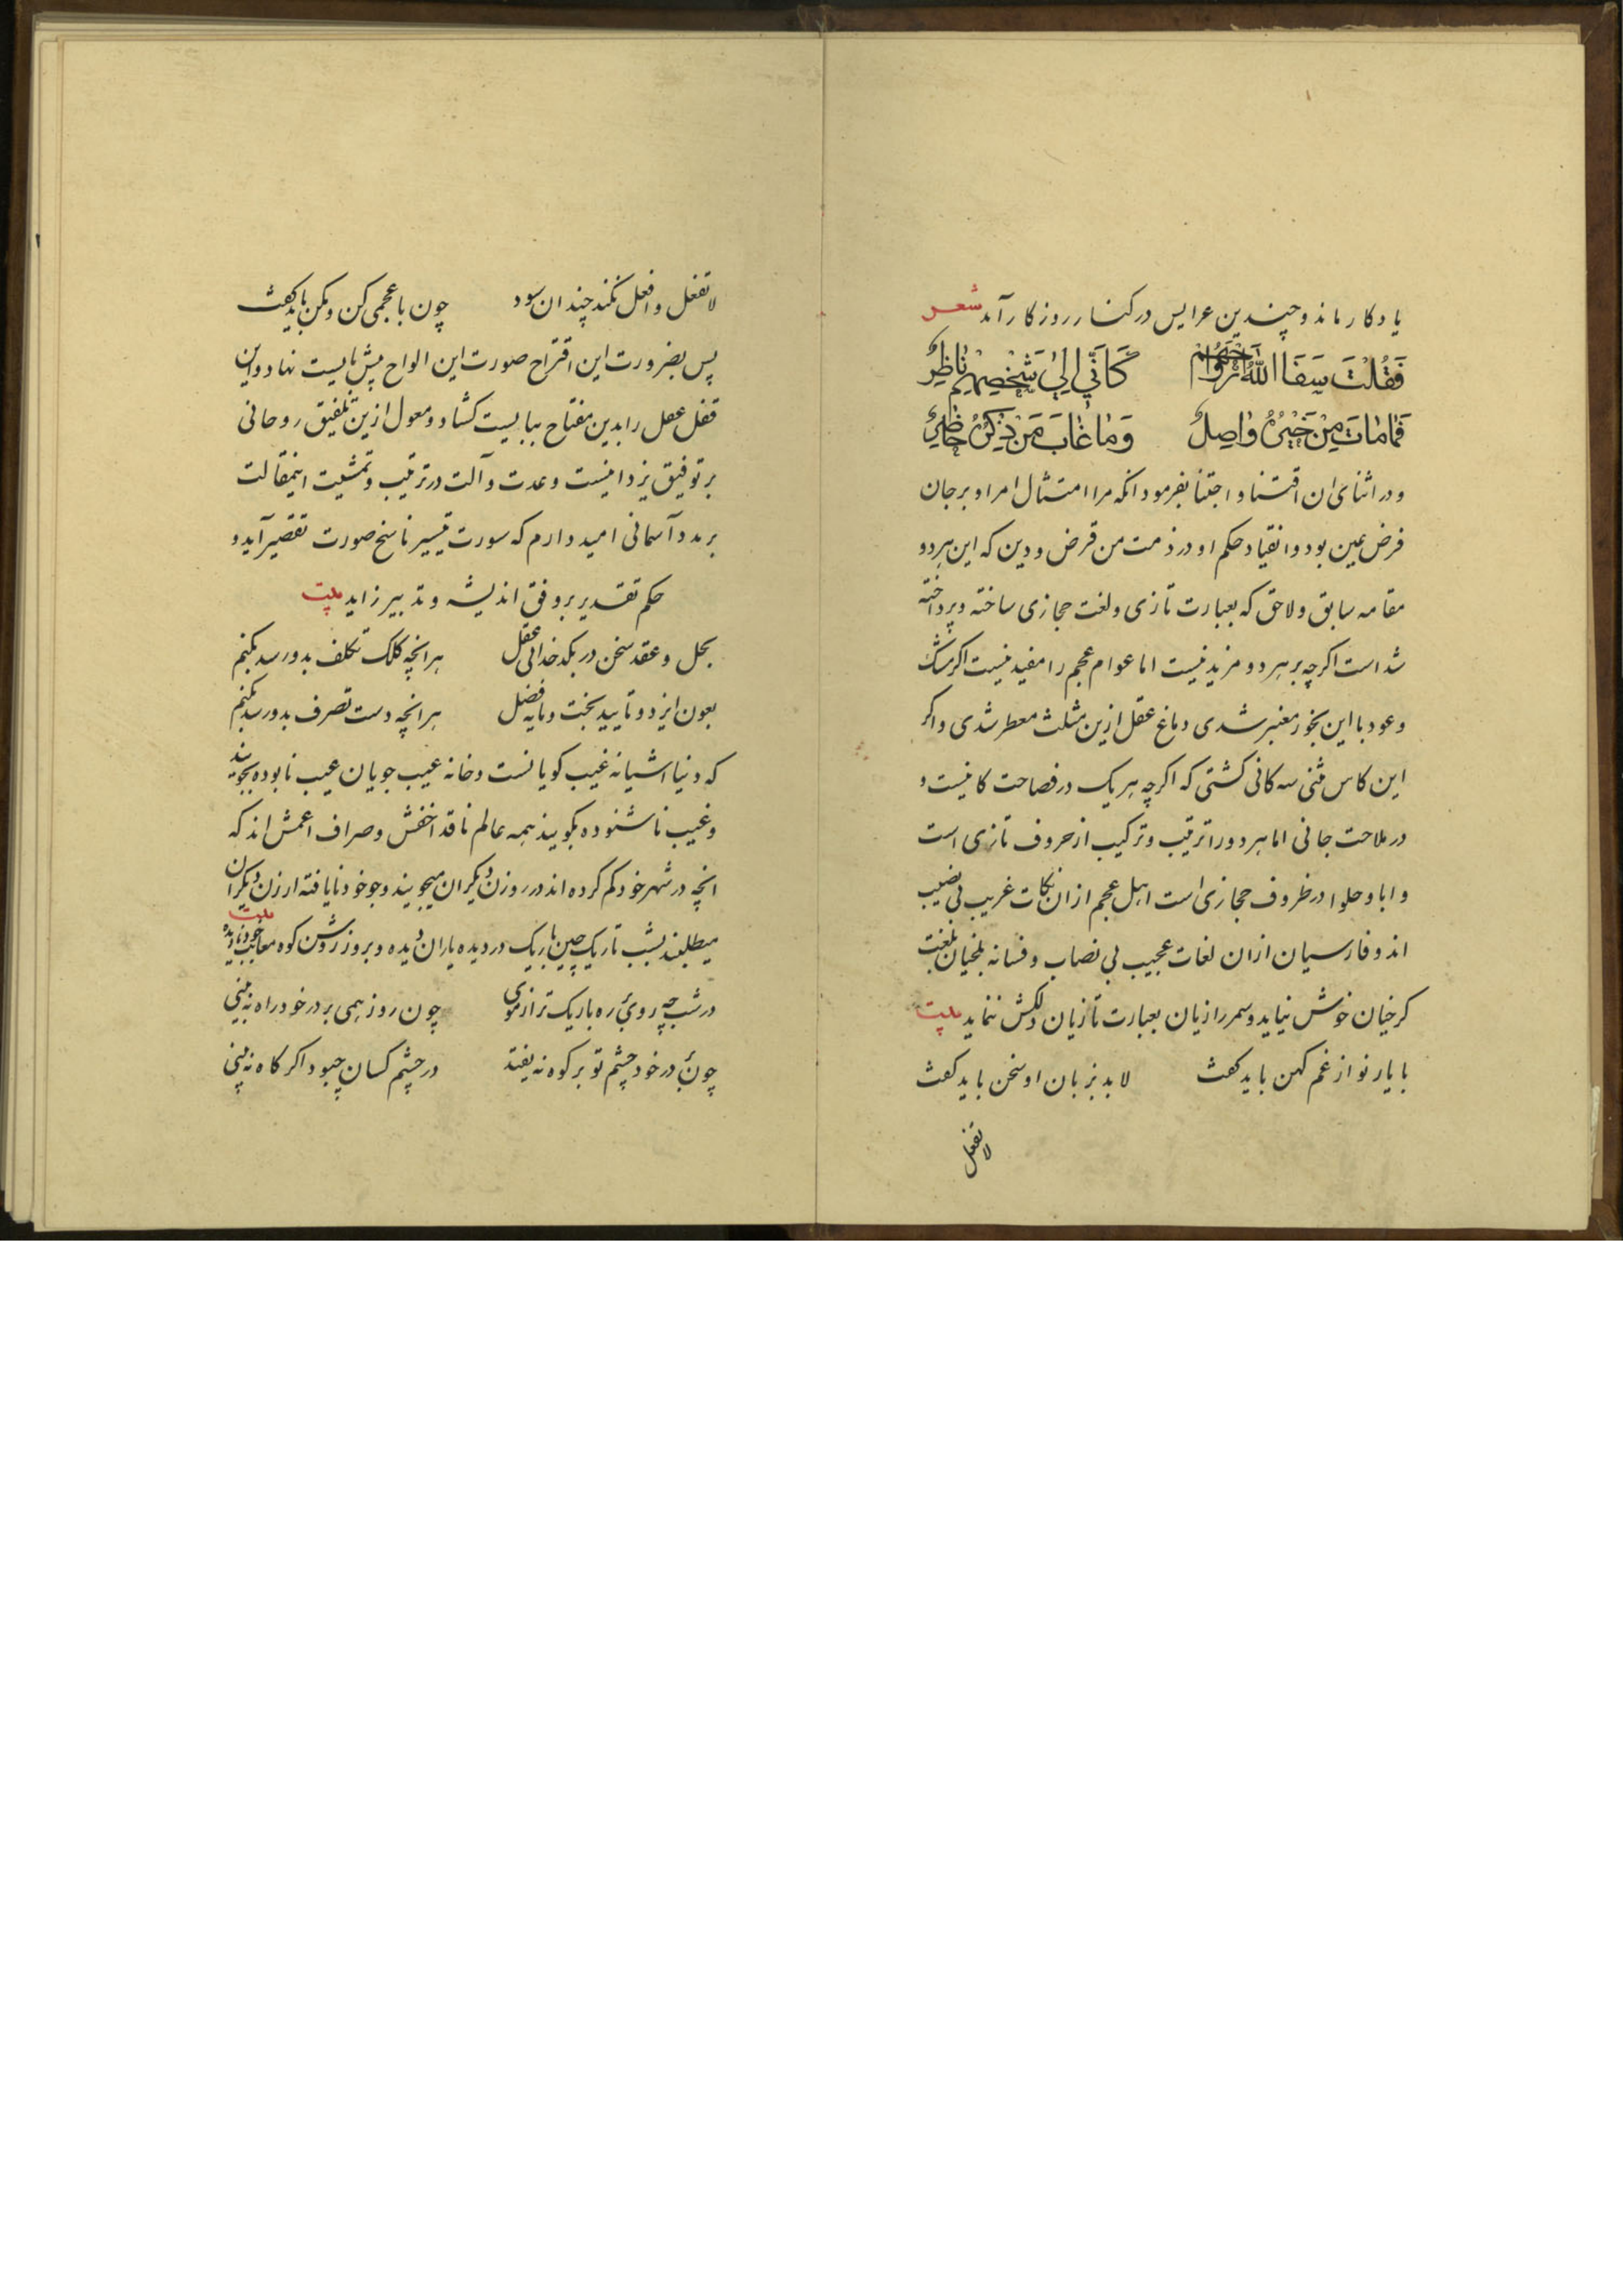 یادکار ماند و چندین عرایس در کنار روزکار آمد شعر
فَقُلْتُ سَقَا اللّٰهُ كَاَنّي اِلیٰ شَخْصِهِم نٰاظِرٌ
فَمٰا مٰاتَ مَنْ خَیْرُهُ وٰاصِلٌ وَمٰا غٰابَ مَنْ ذِکْرُهُ حٰاضِرٌ
و در اثنای ان اقتنا و اجتنا بفرمود انکه مرا امتثال امر او بر جان
فرض عین بود و انقیاد حکم او در ذمت من قرض و دین که این هردو
مقامه سابق و لاحق که بعبارت تازی و لغت حجازی ساخته و پرداخته
شداست اکرچه بر هر دو مزید نیست اما عوام عجم را مفید نیست اکر مشک
و عود با این بخور معنبر شدی دماغ عقل ازین مثلث معطر شدی و اکر
این کاس مثنی سه کانی کشتی که اکرچه هر یک در فصاحت کانیست و
در ملاحت جانی اما هر دو را ترتیب و ترکیب از حروف تازی است
و ابا و حلوا در ظروف حجازی است اهل عجم ازان نکات غریب بی نصیب
اند و فارسیان ازان لغات عجیب بی نصاب و فسانه بلخیان بلغت
کرخیان خوش نیاید و سمر رازیان بعبارت تازیان دلکش ننماید بیت
با یار نو از غم کهن باید کفت لابد بزبان او سخن باید کفت
لا تفعل
لا تفعل و افعل نکند چندان سود چون با عجمی کن و مکن باید کفت
پس بضرورت این اقتراح صورت این الواح پیش بایست نهاد و این
قفل عقل را بدین مفتاح ببایست کشاد و معول ازین تلفیق روحانی
بر توفیق یزدانیست و عدت و آلت در ترتیب و تمشیت اینمقالت
بر مدد آسمانی امید دارم که سورت تیسیر ناسخ صورت تقصیر آید و
حکم تقدیر بر وفق اندیشه و تدبیر زاید بیت
بحل و عقد سخن در بکدخدائی عقل هرانچه کلک تکلف بدو رسد بکنم
بعون ایزد و تایید بخت و مایه فضل هرانچه دست تصرف بدو رسد بکنم
که دنیا اشیانه غیب کویانست و خانه عیب جویان عیب نابوده بجویند
و غیب ناشنوده بکویند همه عالم ناقد اخفش و صراف اعمش اند که
انچه در شهر خود کم کرده اند در روزن دیکران میجویند و جو خود نایافته ارزن دیکران
میطلبند بشب تاریک چین باریک در دیده یاران دیده و بروز روشن کوه معایب خود نادیده بیت
در شب چه روی ره باریک تر از موی چون روز همی بر در خود راه نه بینی
چون در خود چشم تو بر کوه نه یفتد در چشم کسان چبود اکر کاه نه بینی